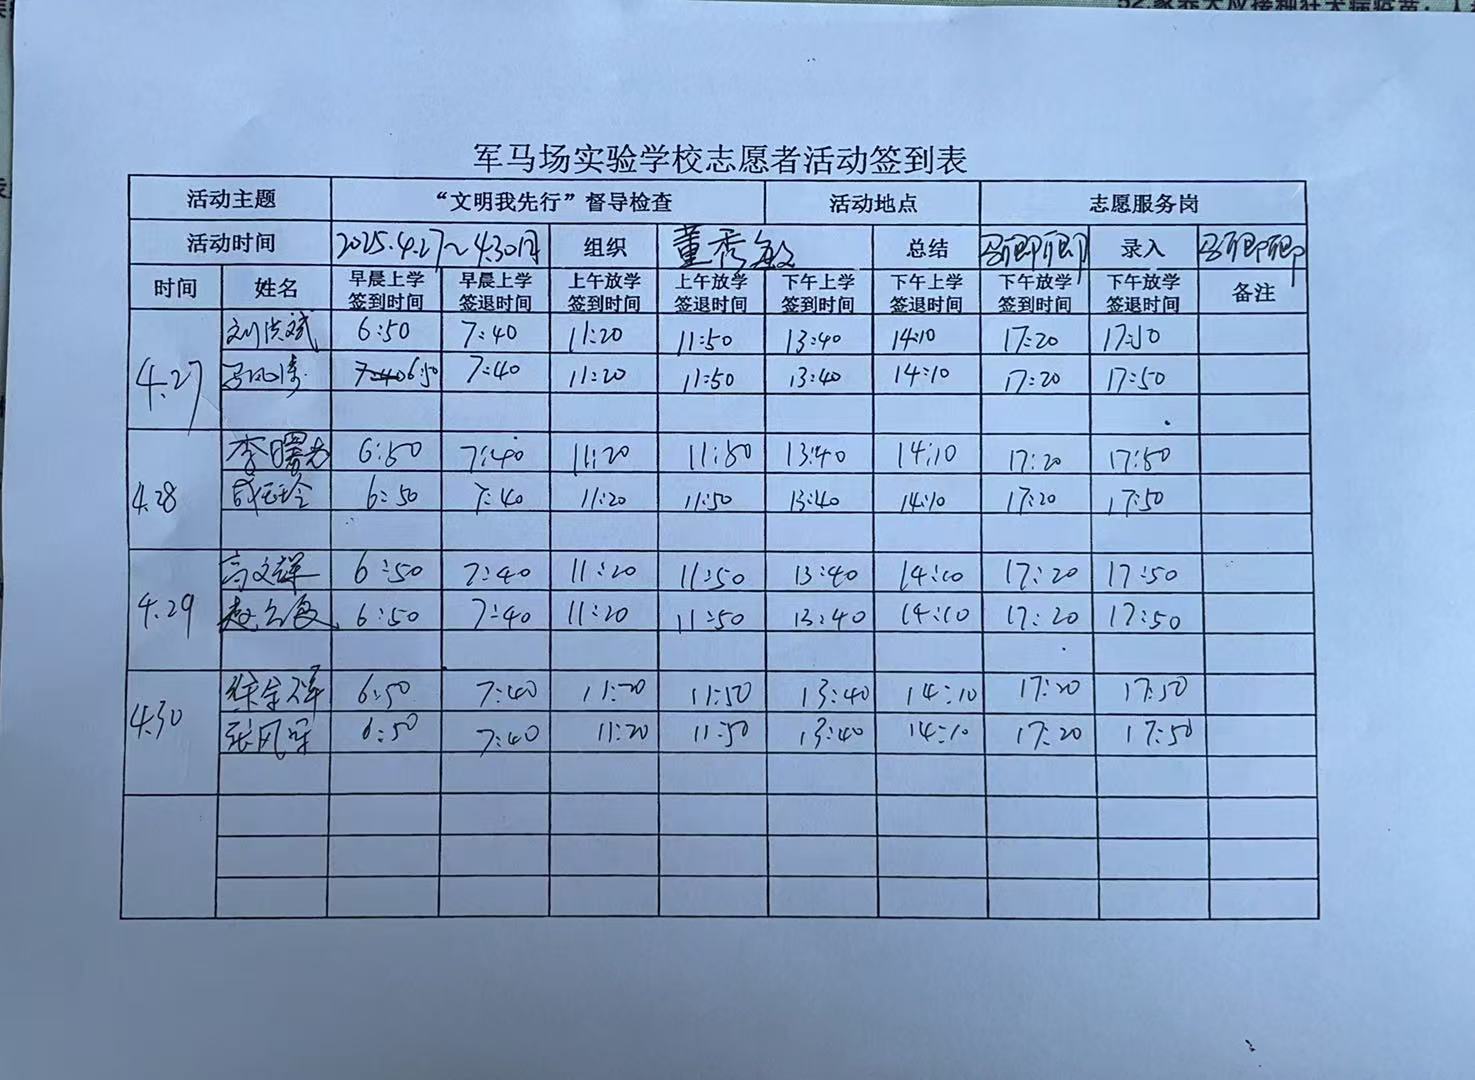 52.家养犬应接种狂犬病疫苗，人
军马场实验学校志愿者活动签到表
活动主题 “文明我先行”督导检查 活动地点 志愿服务岗
活动时间 2025.4.27～4.30日 组织 董秀敏 总结 录入
时间 姓名 早晨上学签到时间 早晨上学签退时间 上午放学签到时间 上午放学签退时间 下午上学签到时间 下午上学签退时间 下午放学签到时间 下午放学签退时间 备注
4.27 刘洪斌 6:50 7:40 11:20 11:50 13:40 14:10 17:20 17:50
马风涛 7:40 6:50 7:40 11:20 11:50 13:40 14:10 17:20 17:50
4.28 李曙光 6:50 7:40 11:20 11:50 13:40 14:10 17:20 17:50
6:50 7:40 11:20 11:50 13:40 14:10 17:20 17:50
4.29 高文辉 6:50 7:40 11:20 11:50 13:40 14:10 17:20 17:50
6:50 7:40 11:20 11:50 13:40 14:10 17:20 17:50
4.30 6:50 7:40 11:20 11:50 13:40 14:10 17:20 17:50
张风军 6:50 7:40 11:20 11:50 13:40 14:10 17:20 17:50